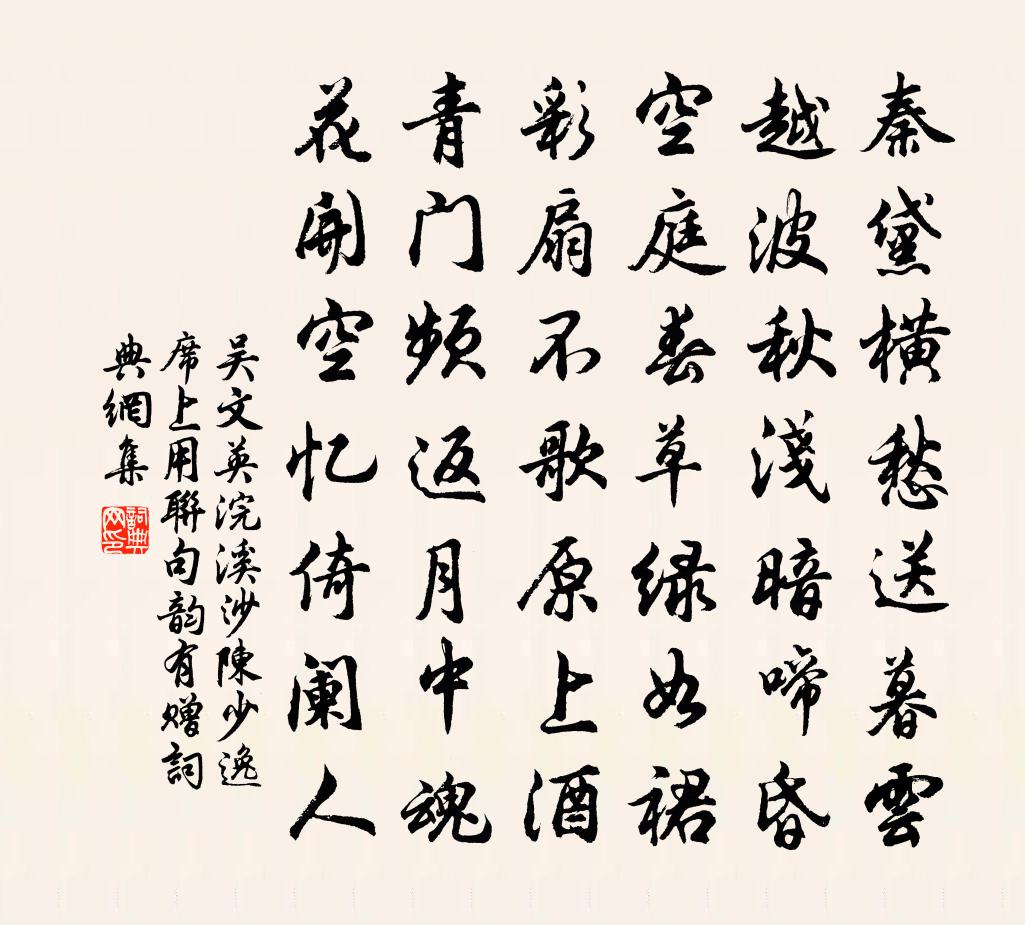 秦黛橫愁送暮雲
越波秋淺暗啼昏
空庭春草綠如裙
彩扇不歌原上酒
青门頻返月中魂
花開空忆倚阑人
吴文英浣溪沙陳少逸
席上用聯句韵有赠詞
典網集
詞典
网印